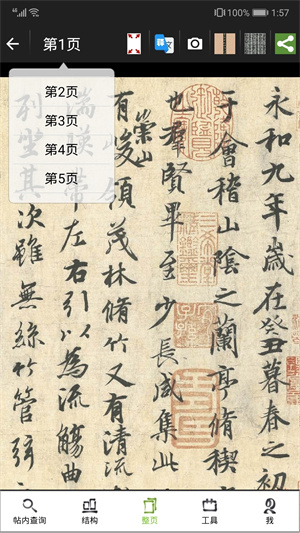 1:57
100%
第1页
第2页
第3页
第4页
第5页
永和九年歲在癸丑暮春之初
于會稽山陰之蘭亭脩稧
也羣賢畢至少長咸集此
有崇山峻領茂林脩竹又有清流
湍暎帶左右引以為流觴曲
列坐其次雖無絲竹管弦
帖内查询
结构
整页
工具
我